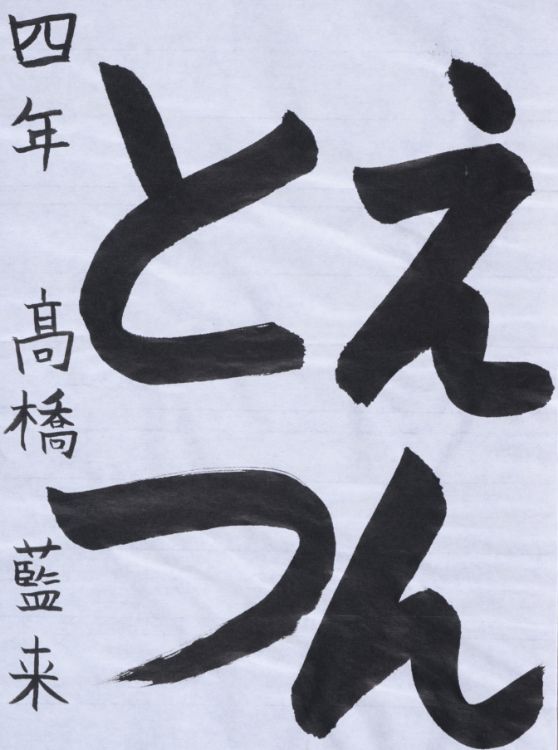 えん
とつ
四年 髙橋 藍来